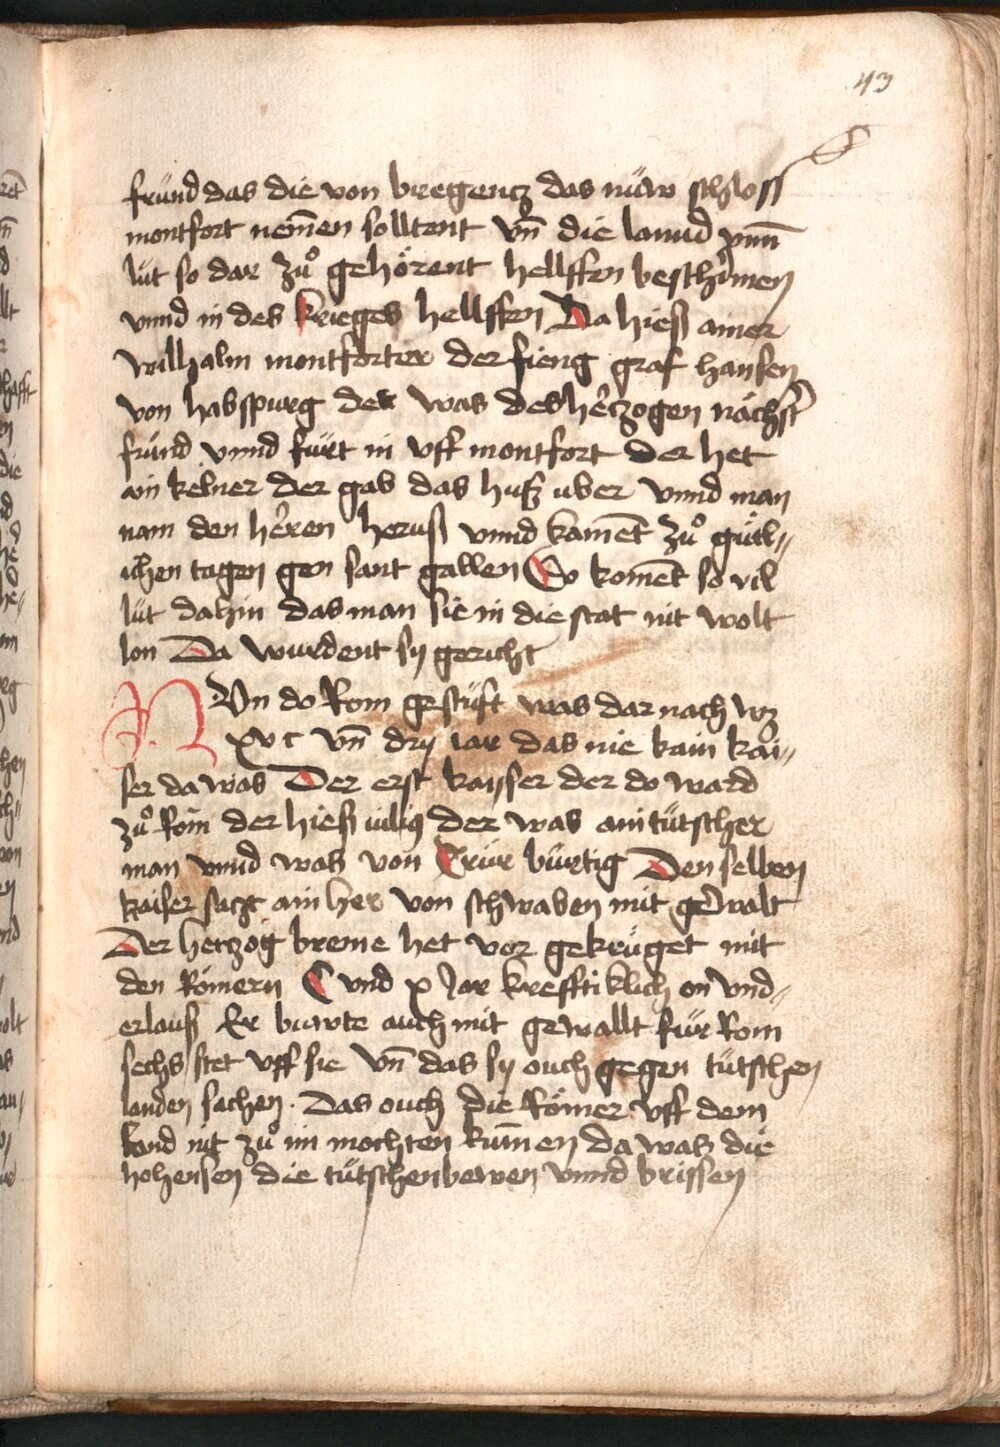 43
fründ das die von bregentz das nüw schloss
montfort nem̄en solltent vn̄ die lannd vnn̄
lüt so dar zuͦ gehörent hellffen beschirmen
vnnd in des krieges hellffen Da hieß ainer
wilhalm montforter der fieng graf hansen
von habspurg der was des hertzogen nächst
fründ vnnd fürt in vff montfort der het
ain kelner der gab das huß uber vnnd man
nam den herren heruß vnnd kament zuͦ gütl„
ichen tagen gen sant gallen Do koment so vil
lüt dahin das man sie in die stat nit wolt
lon Da wurdent sy gericht
NVn do Rom gestüft was dar nach wz
xv c vn̄ dry iar das nie kain kai„
ser da was Der erst kayser der do ward
zuͦ Rom der hieß iuliꝰ der was ain tütscher
man vnnd was von Trür bürtig Den selben
kaiser sazt ain her von schwaben mit gewalt
Der hertzog breme het vor gekrüget mit
den Römern C vnd x Jar krefftiklich on vnd„
erlauß Er buwte auch mit gewallt für Rom
sechs stet vff sie vn̄ das sy ouch gegen tütschen
landen sachen. Das ouch die Römer vff dem
land nit zuͦ im mochten kum̄en da was die
hohensen die tütschen bewen vnnd brissen